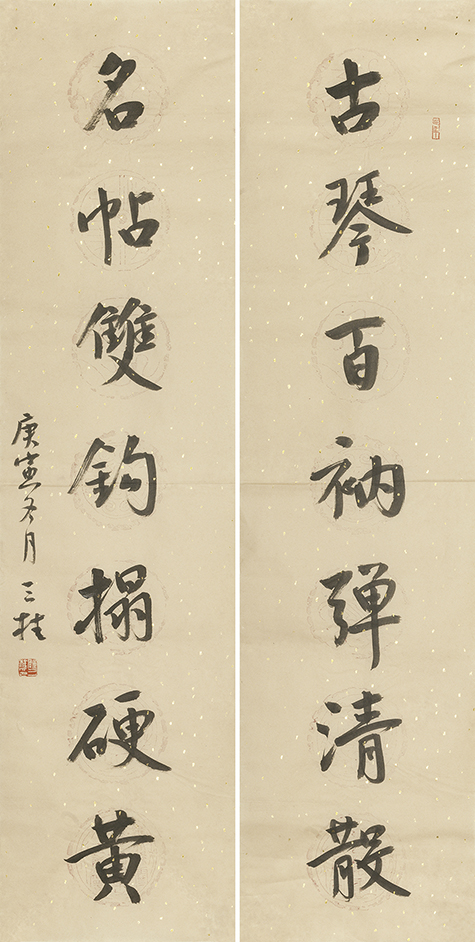 古琴百衲弹清散
名帖雙鈎搨硬黃
庚寅冬月 三桂